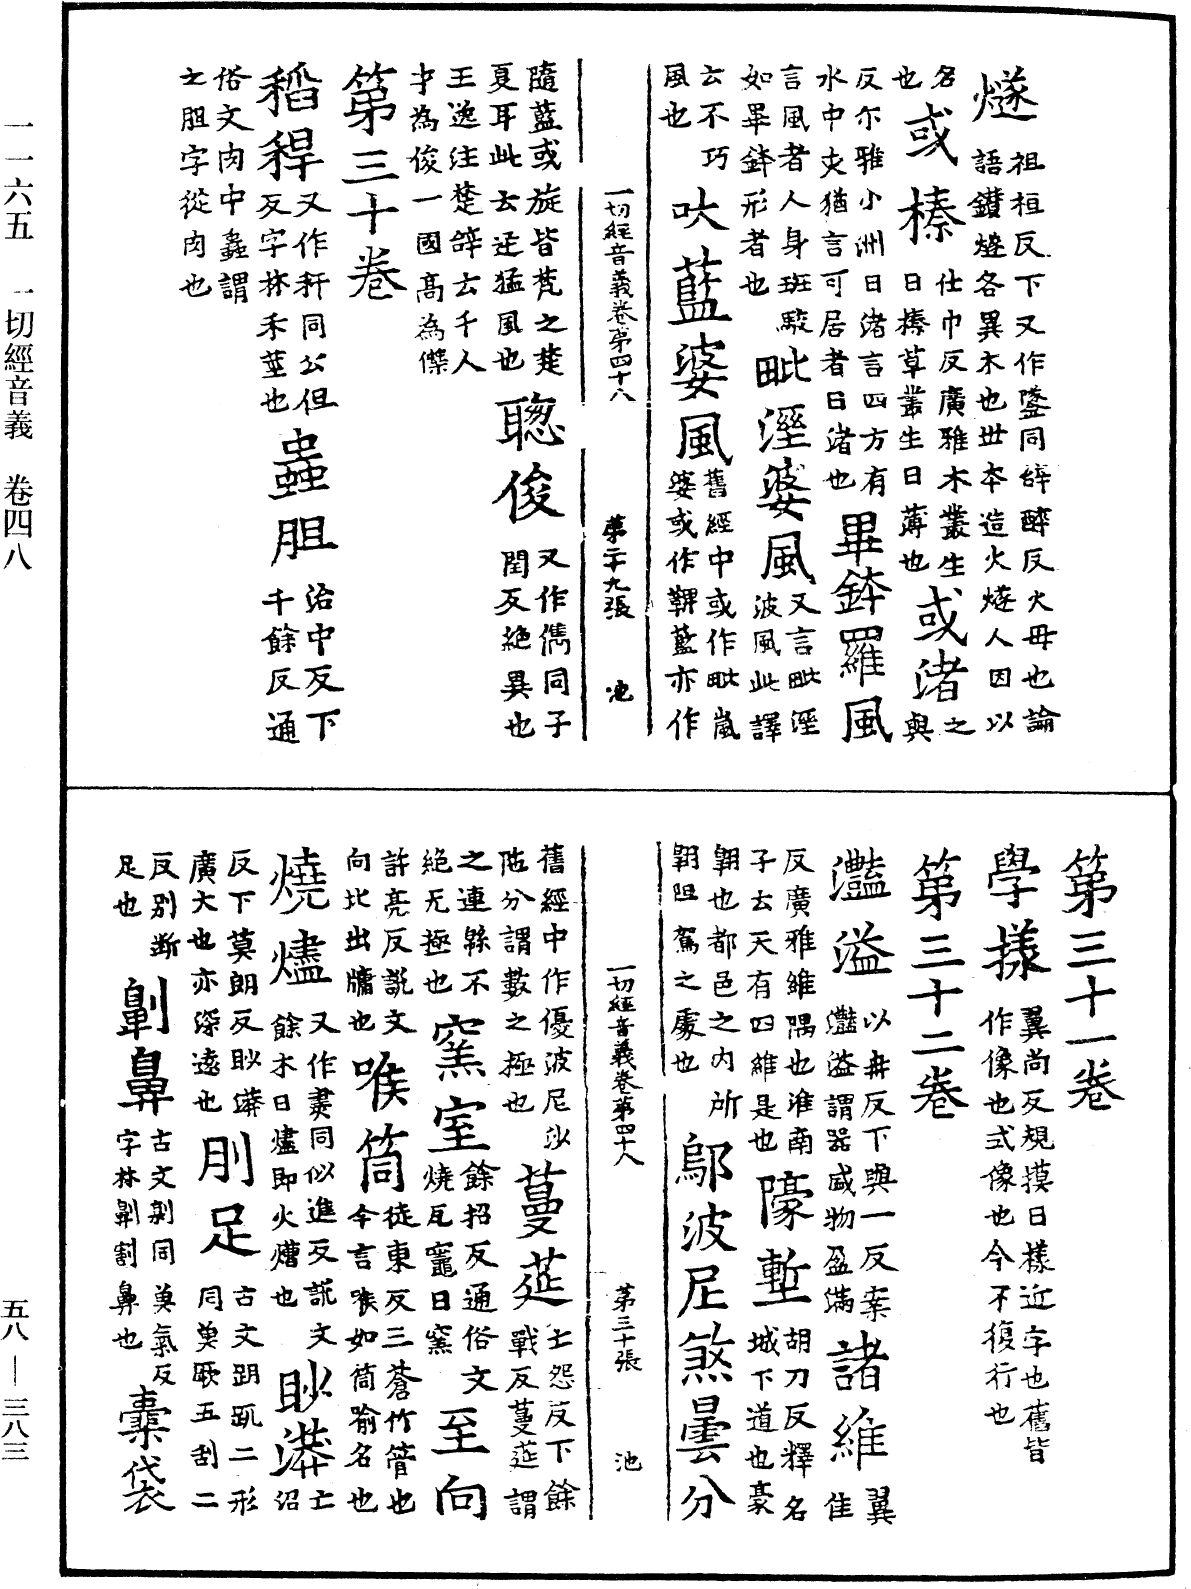 燧祖桓反下又作鐆同辝醉反火母也論
語鑽燧各異木也世本造火燧人因以
名也或榛仕巾反廣雅木叢生曰榛草叢生曰薄也或渚之與
反尒雅小洲曰渚言四方有水中央猶言可居者曰渚也畢鉢羅風
言風者人身斑駮如畢鉢形者也毗溼婆風又言毗溼波風此譯
云不巧風也吠藍婆風舊經中或作毗嵐婆或作鞞藍亦作
一切經音義卷第四十八 第二十九張 池
隨藍或旋皆梵之楚夏耳此云迅猛風也聰俊又作儁同子閏反絕異也
王逸注楚辝云千人才為俊一國高為傑
第三十卷
稻稈又作秆同公但反字林禾莖也蟲胆治中反下千餘反通
俗文肉中蟲謂之胆字從肉也
第三十一卷
學樣翼尚反規摸曰樣近字也舊皆作像也式像也今不復行也
第三十二卷
灩溢以冉反下與一反案灩溢謂器盛物盈滿諸維翼隹
反廣雅維隅也淮南子云天有四維是也隊壍胡刀反釋名城下道也豪
翱也都邑之內所翱阻駕之處也鄔波尼煞曇分
一切經音義卷第四十八 第三十張 池
舊經中作優波尼沙陁分謂數之極也蔓莚士怨反下餘戰反蔓莚謂
之連緜不絕无極也窯室餘招反通俗文燒瓦竈曰窯至向
許亮反說文向北出牖也喉筒徒東反三蒼竹管也今言喉如筒喻名也
燒燼又作㶳同似進反說文餘木曰燼即火燼也眇漭亡沼
反下莫朗反眇漭廣大也亦深遠也刖足古文跀𧿁二形同奠厥五刮二
反別斷足也劓鼻古文㓷同奠氣反字林劓割鼻也橐袋
一一六五 一切經音義 卷四八
五八—三八三